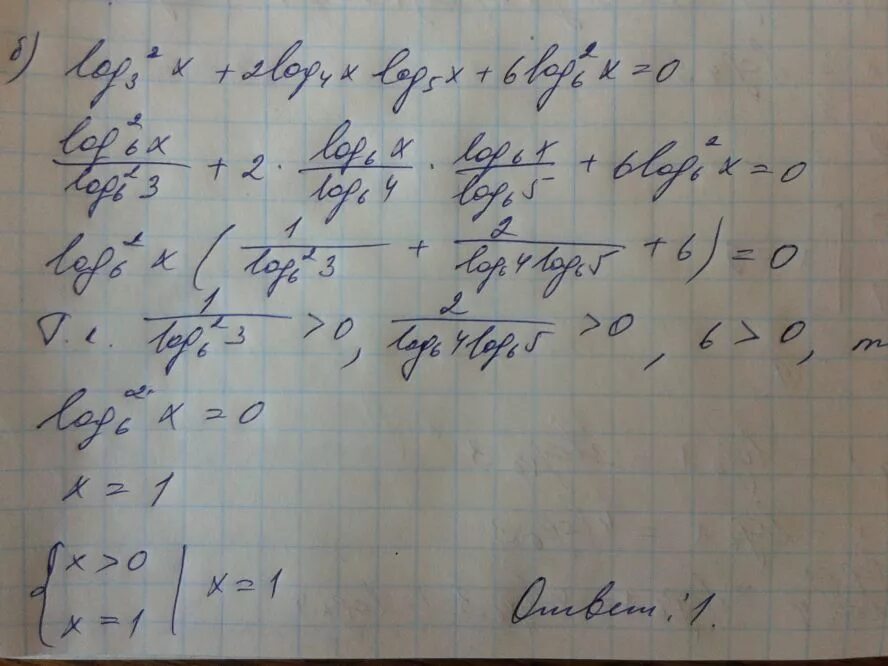 б) log₃²x + 2log₄x log₅x + 6log₆²x = 0
log₆²x/log₆²3 + 2 · log₆x/log₆4 · log₆x/log₆5 + 6log₆²x = 0
log₆²x (1/log₆²3 + 2/(log₆4 log₆5) + 6) = 0
Т.к. 1/log₆²3 > 0, 2/(log₆4 log₆5) > 0, 6 > 0, т
log₆²x = 0
x = 1
{ x > 0
x = 1 | x = 1
Ответ: 1.